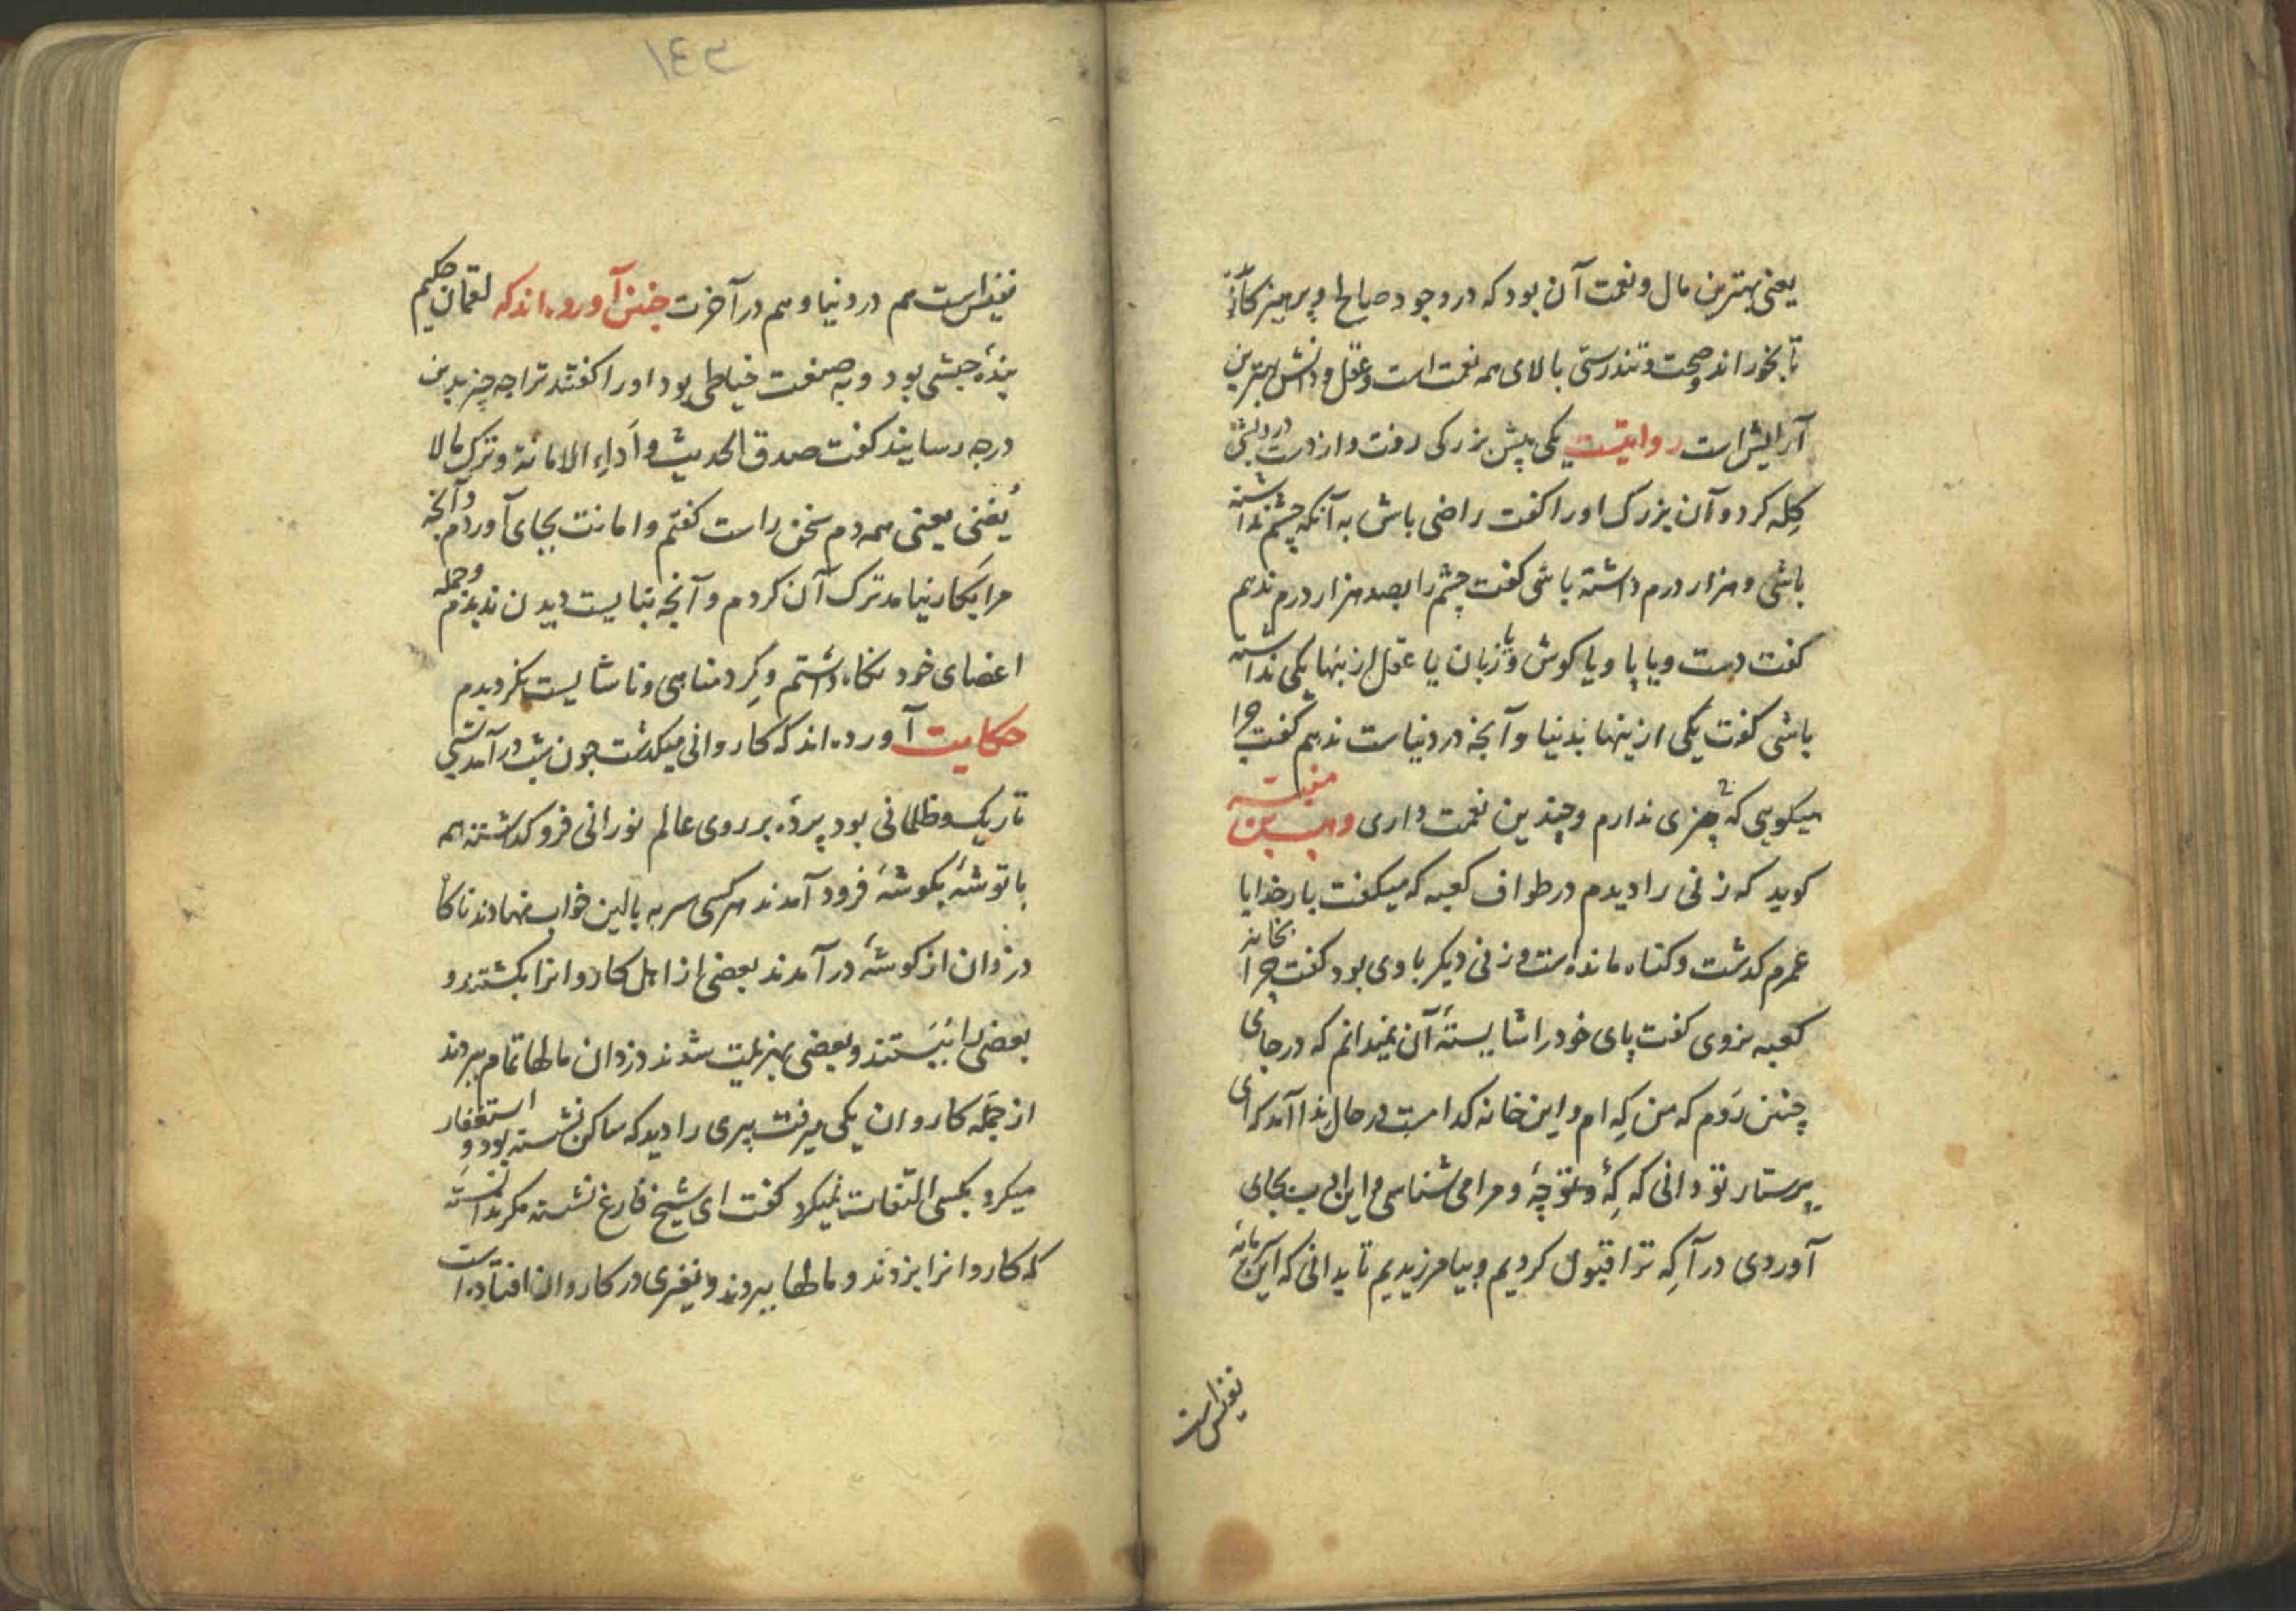 یعنی بهترین مال و نعمت آن بود که در وجود صالح او پرهیزکار
تا بخوراند و صحت و تندرستی بالای همه نعمت است و عقل و دانش بهترین
آرایش است روایتست یکی پیش بزرکی رفت و از دست درویشی
کِله کرد و آن بزرک او را کفت راضی باش به آنکه چشم نداشته
باشی و هزار درم داشته باشی کفت چشم را بصد هزار درم ندهم
کفت دست و یا پا و یا کوش و یا زبان یا عقل ازینها یکی نداشته
باشی کفت یکی ازینها بدنیا و آنجه در دنیاست ندهم کفت چرا
میکویی که چیزی ندارم و چندین نعمت داری وهب بن منبه
کوید که زنی را دیدم در طواف کعبه که میکفت بار خدایا
عمرم کدشت و کناه مانده است و زنی دیکر با وی بود کفت چرا بخانه
کعبه نروی کفت پای خود را شایستهٔ آن نمیدانم که در جای
چنین رَوم که من کِه ام و این خانه کدامست در حال ندا آمد که ای
پرستار تو دانی که کِهٔ و تو چهٔ و مرا می شناسی و این ادب بجای
آوردی درآ کِه ترا قبول کردیم و بیامرزیدیم تا بدانی که این مایه
نغز است
۱٤۵
نغز است هم در دنیا و هم در آخرت جنین آورده اند که لقمان حکیم
بندهٔ حبشی بود و به صنعت خیاطی بود او را کفتند ترا چه چیز بدین
درجه رسانید کفت صدق الحدیث و أداء الامانة و ترک مالا
یُغنی یعنی همه دم سخن راست کفتم و امانت بجای آوردم و آنجه
مرا بکار نیامد ترک آن کردم و آنجه نبایست دیدن ندیدم و جمله
اعضای خود نکاه داشتم و کِرد مناهی و ناشایست نکردیدم
حکایت آورده اند که کاروانی میکدشت جون شب درآمد شبی
تاریک و ظلمانی بود پردهٔ بر روی عالم نورانی فرو کداشتند همه
با توشهٔ بکوشهٔ فرود آمدند هر کسی سر به بالین خواب نهادند ناکاه
دزدان از کوشهٔ درآمدند بعضی از اهل کاروانرا بکشتند و
بعضی را ببَستند و بعضی بهزیمت شدند دزدان مالها تمام ببردند
از جمله کاروان یکی میرفت پیری را دید که ساکن نشسته بود و استغفار
میکرد بکسی التفات نمیکرد کفت ای شیخ فارغ نشسته مکر ندانسته
که کاروانرا بزدند و مالها ببردند و نفیری در کاروان افتاده است